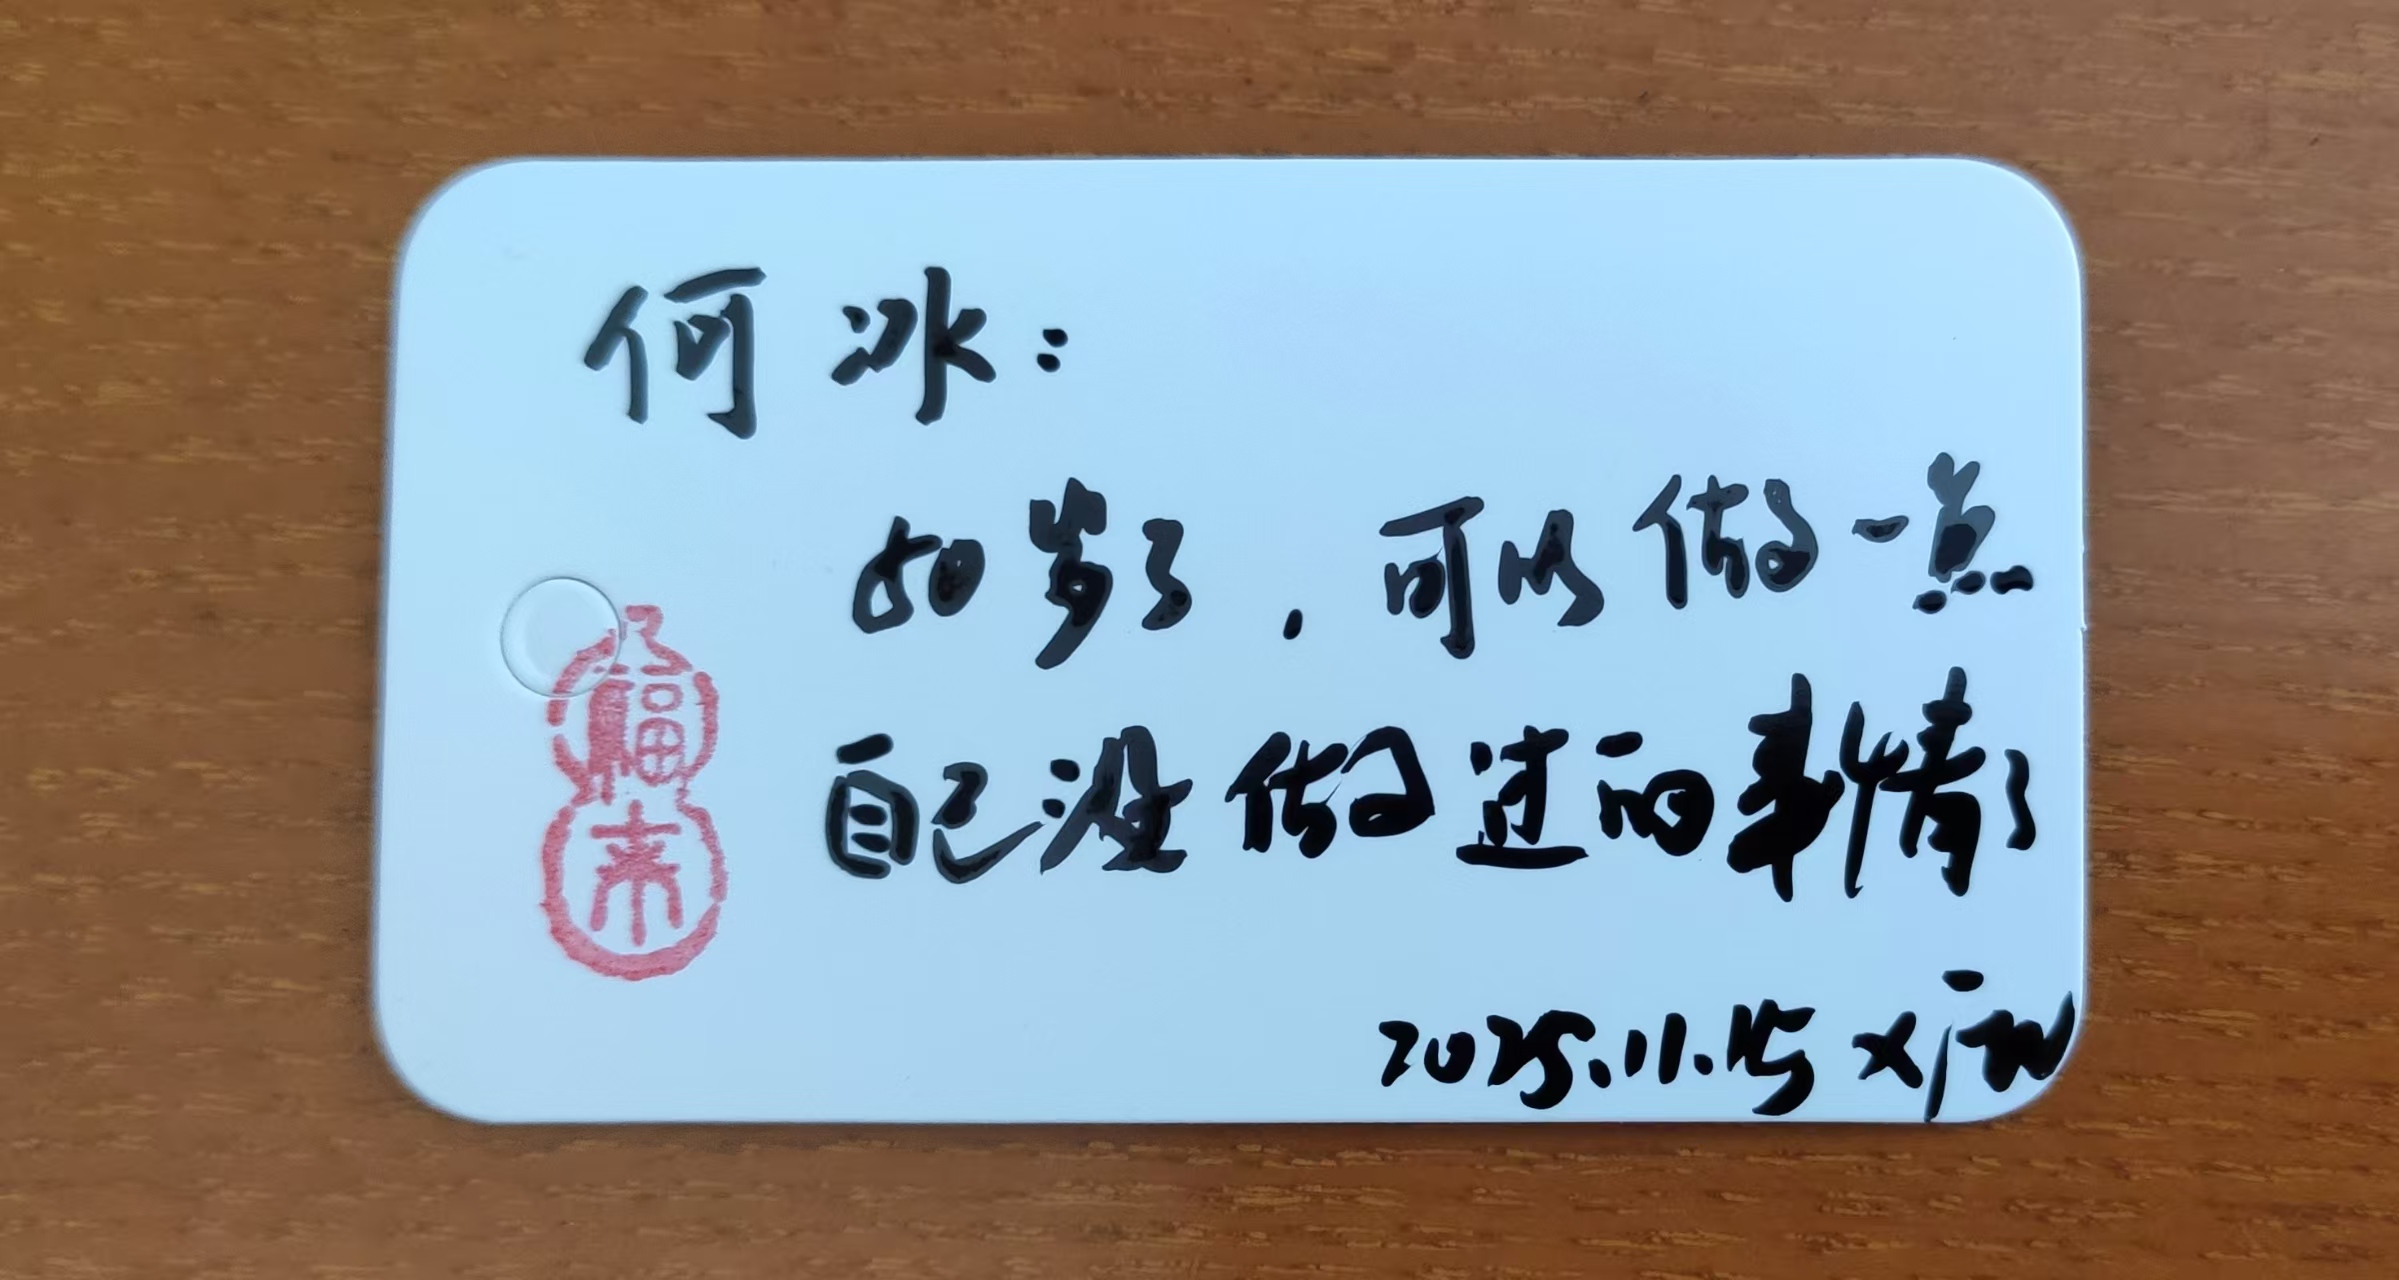 何冰：
50岁了，可以做一点
自己没做过的事情了
2025.11.15
福来